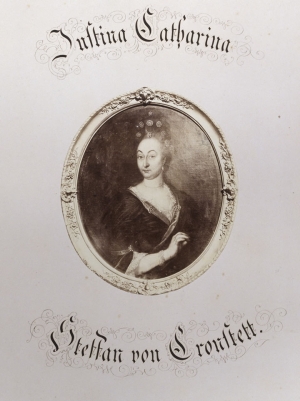 Justina Catharina
Steffan von Cronstett.